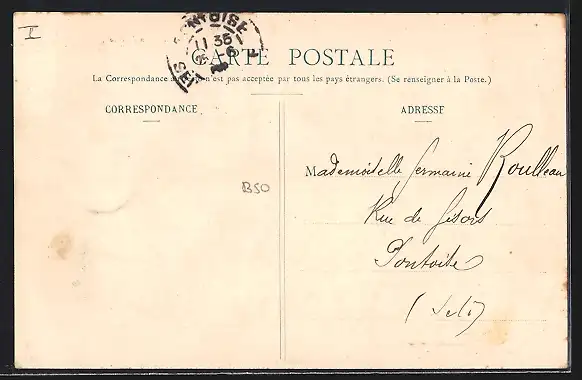 I
PONTOISE
11 35
CARTE POSTALE
La Correspondance n'est pas acceptée par tous les pays étrangers. (Se renseigner à la Poste.)
CORRESPONDANCE
ADRESSE
Mademoiselle Germaine Roulleau
B50
Rue de Gisors
Pontoise